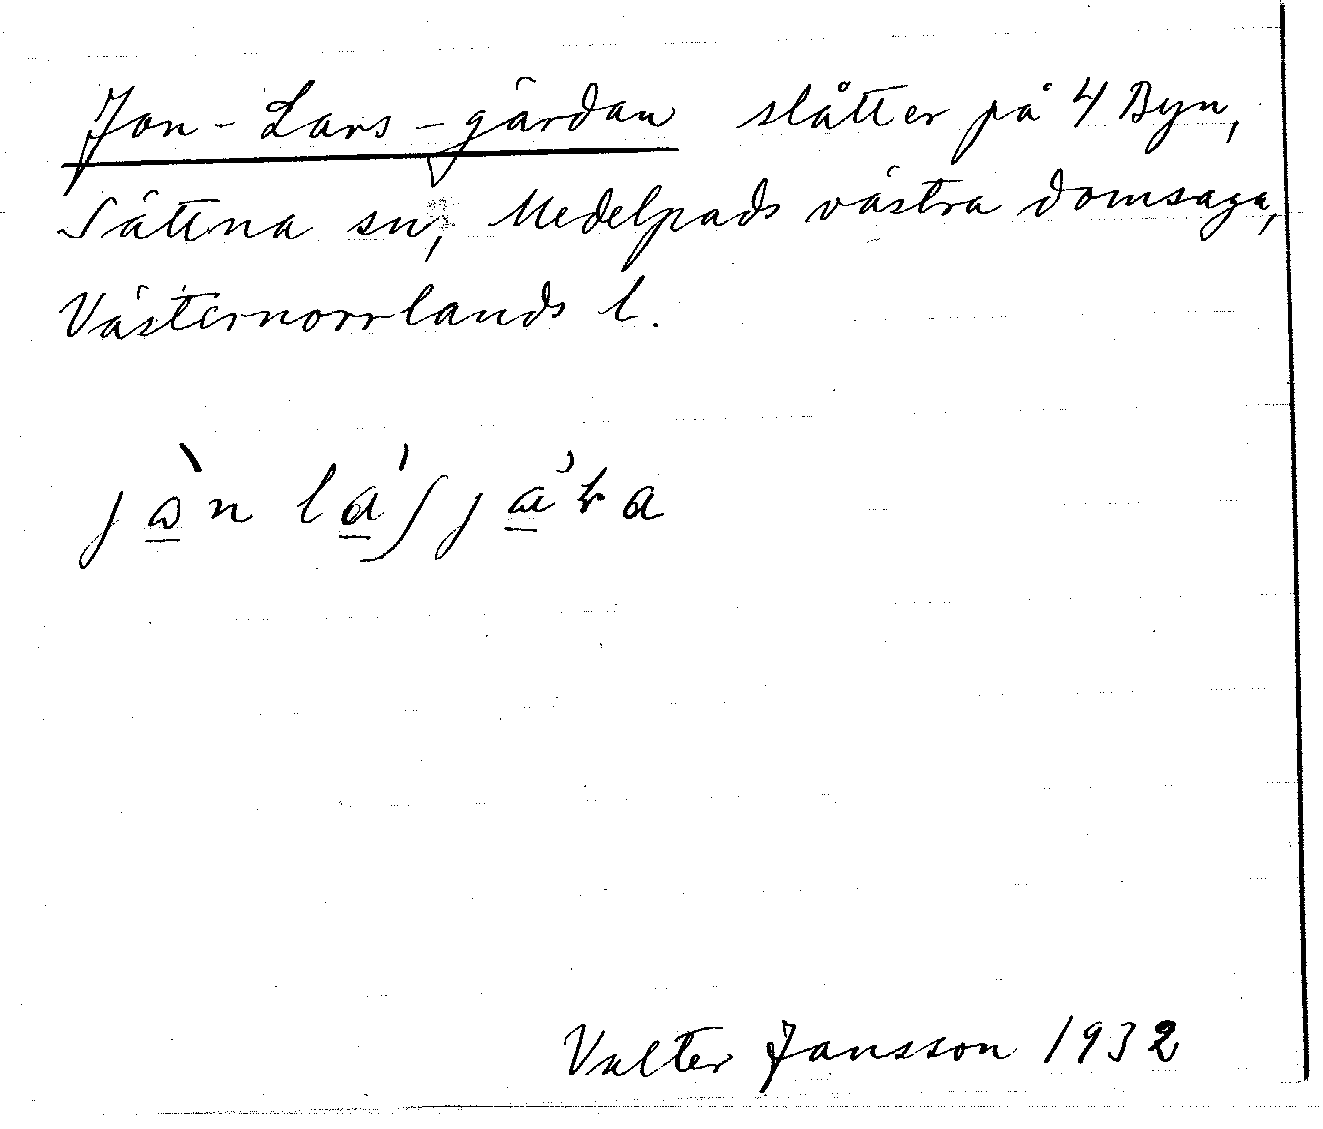 Jon-Lars-gärdan slåtter på 4 Byn,
Sättna sn, Medelpads västra domsaga,
Västernorrlands l.
Valter Jansson 1932